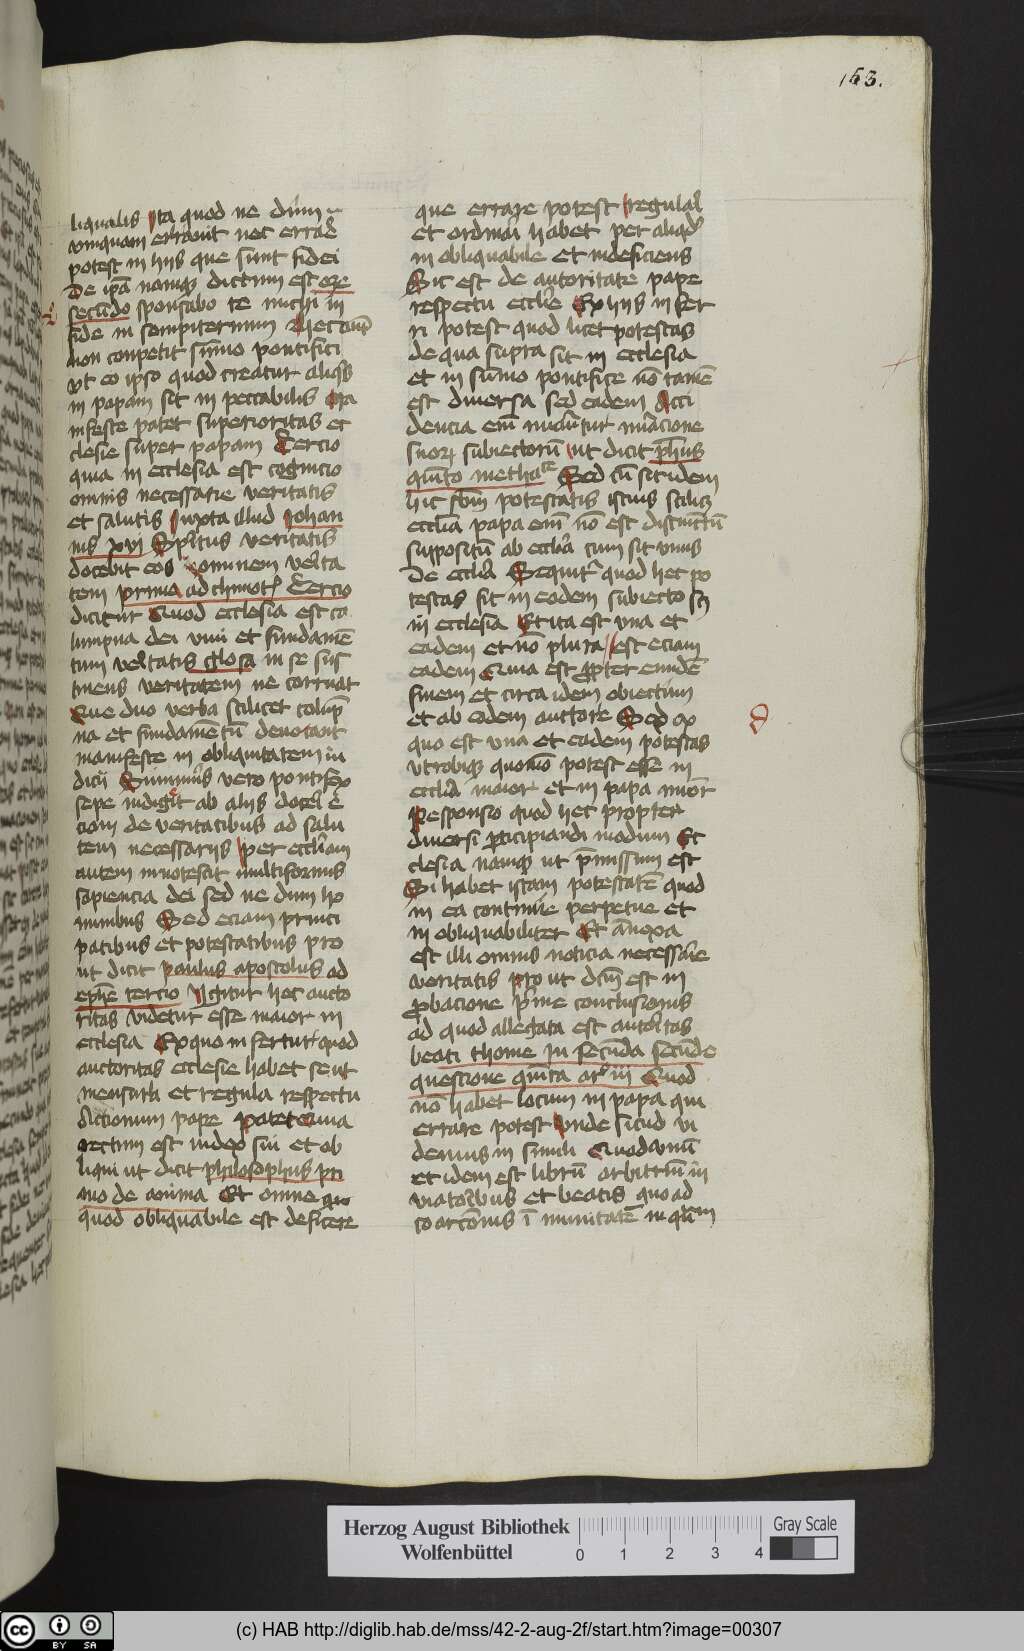 153.
liqualis Ita quod ne dum
vmquam errauit nec errare
potest in hiis que sunt fidei
De ipa namq dictum est ozee
secūdo sponsabo te michi in
fide in sempiternum Nec tamē
non conpetit sūmo pontifici
vt eo ipso quod creatur aliqs
in papam sit in peccabilis Ma
nifeste patet superioritas ec
clesie super papam Tercio
quia in ecclesia est cognicio
omnis necessarie veritatis
et salutis Juxta illud Johan
nis xvj Spūtus veritatis
docebit eos omnem veīta
tem prima ad thimot Tercio
dicitur Quod ecclesia est co
lumpna dei viui et fundamē
tum veītatis glosa in se sus
tinens veritatem ne corruat
Que duo verba scilicet colūp
na et fundamētū denotant
manifeste in obliquitatem iu
dicij Summus vero pontifex
sepe indiget ab aliis doceī e
ciam de veritatibus ad salu
tem necessariis per eccliam
autem innotescit multiformis
sapiencia dei sed ne dum ho
minibus Sed eciam princi
patibus et potestatibus pro
ut dicit paulus apostolus ad
ephē tercio Igitur hec aucto
ritas videtur esse maior in
ecclesia Ex quo infertur quod
auctoritas ecclesie habet se ut
mensura et regula respectu
Actionum pape patet Quia
rectum est iudex sui et ob
liqui ut dicit philosophus pri
mo de anima Et omne quo
quod obliquabile est deficere
que errare potest regulaī
et ordinaī habet per aliqd
in obliquabile et indeficiens
Sic est de autoritate pape
respectu ecclie Ex hiis infer
ri potest quod licet potestas
de qua supra sit in ecclesia
et in sūmo pontifice nō tamē
est diuersa sed eadem Acci
dencia em numerātur numeracione
suorum subiectorū ut dicit phus
quīto metha Sed cū sit idem
hic sbm potestatis istius scilicet
ecclia papa em nō est distinctū
suppositū ab ecclia cum sit vnus
De ecclia Sequitur quod hec po
testas sit in eodem subiecto scz
in ecclesia Et ita est vna et
eadem et nō plura est eciam
eadem Quia est propter eundē
finem et circa idem obiectum
et ab eodem auctore Sed ex
quo est vna et eadem potestas
vtrobique quomō potest esse in
ecclia maior et in papa minor
Responsio quod hec propter
diuersi participiandi modum Ec
clesia namq ut pmissum est
Si habet istam potestatē quod
in ea continue perpetue et
in obliquabiliter Et annexa
est illi omnis noticia necessarie
veritatis prout dcm est in
probacione prime conclusionis
ad quod allegata est autoritas
beati thome In secūda secūde
questione quinta ar iii Quod
nō habet locum in papa qui
errare potest Vnde sicud vi
demus in simili Quod vnū
et idem est librū arbitriū in
viatoribus et beatis quo ad
coarcōnis īmunitatē in qūtum
Herzog August Bibliothek
Wolfenbüttel
0 1 2 3 4
Gray Scale
cc BY SA
(c) HAB http://diglib.hab.de/mss/42-2-aug-2f/start.htm?image=00307